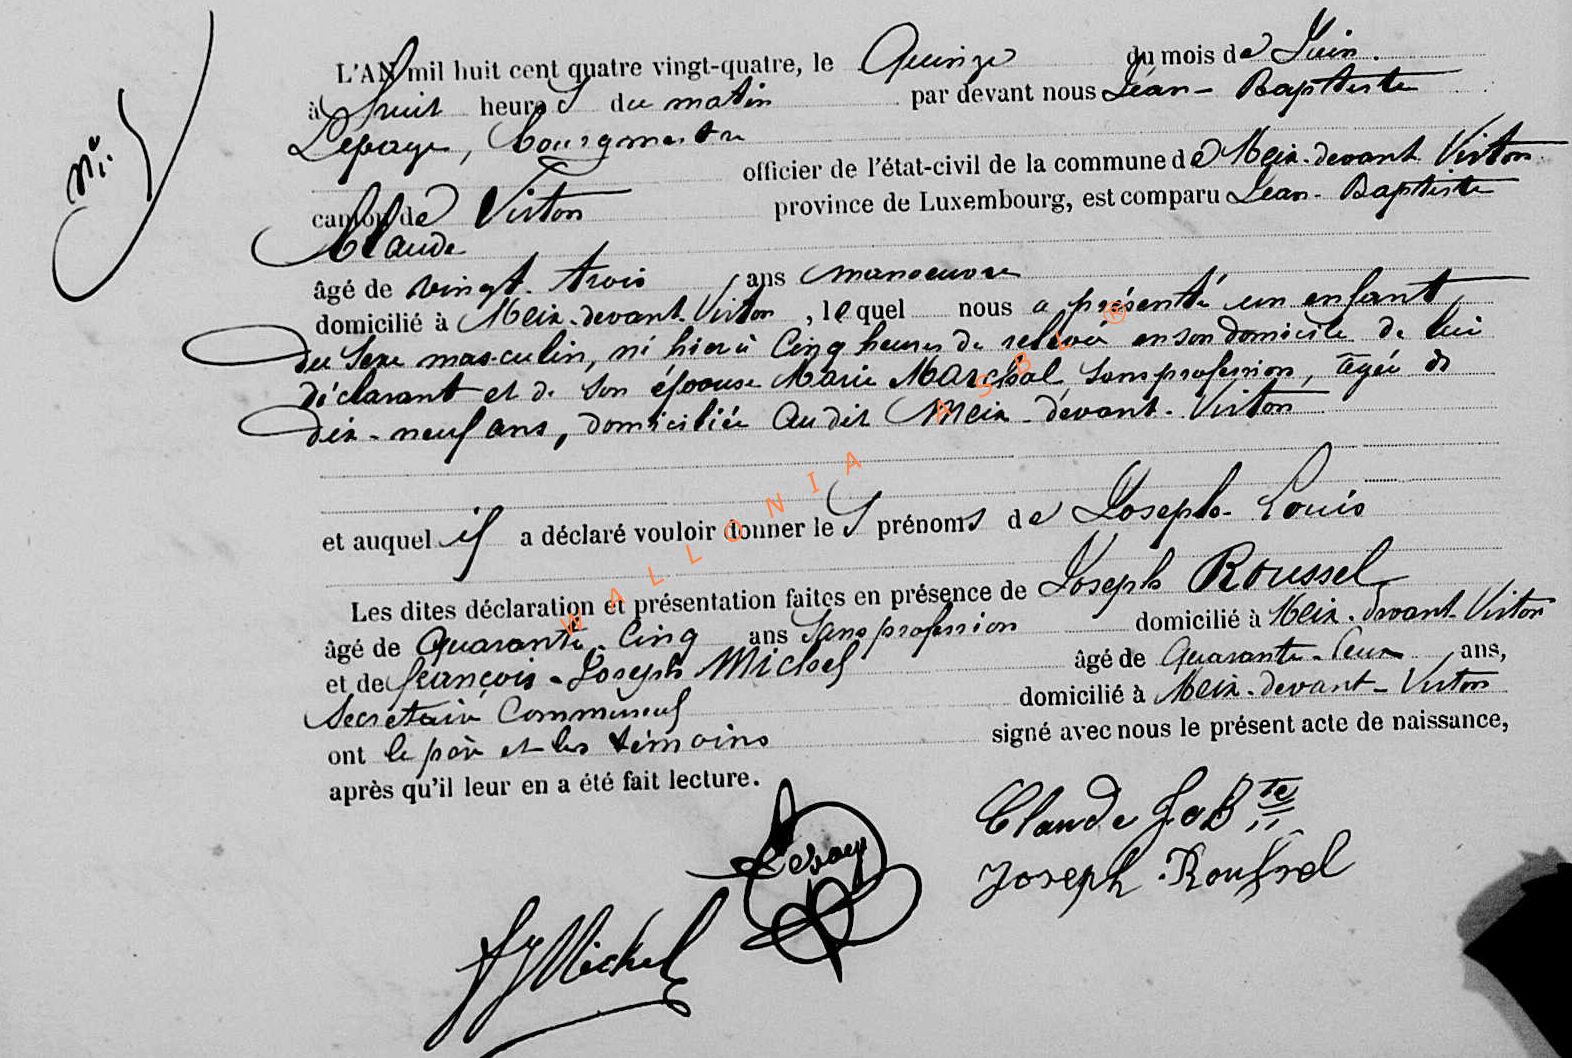 L'AN mil huit cent quatre vingt-quatre, le Quinze du mois de Juin.
à huit heures du matin par devant nous Jean-Baptiste
Lepage, bourgmestre
officier de l'état-civil de la commune de Meix-devant Virton
canton de Virton province de Luxembourg, est comparu Jean-Baptiste
Claude
âgé de vingt-trois ans manoeuvre
domicilié à Meix-devant-Virton, lequel nous a présenté un enfant
du sexe masculin, né hier à Cinq heures de relevée en son domicile de lui
déclarant et de son épouse Marie Marchal sans profession, agée de
dix-neuf ans, domiciliée audit Meix-devant-Virton
et auquel il a déclaré vouloir donner les prénoms de Joseph-Louis
Les dites déclaration et présentation faites en présence de Joseph Roussel
âgé de Quarante-Cinq ans Sans profession domicilié à Meix-devant-Virton
et de François-Joseph Michel âgé de Quarante-deux ans,
Secretaire Communal domicilié à Meix-devant-Virton
ont le père et les témoins signé avec nous le présent acte de naissance,
après qu'il leur en a été fait lecture.
Claude J. Bte
Lepage
Joseph Roussel
FJMichel
WALLONIA ASBL ®